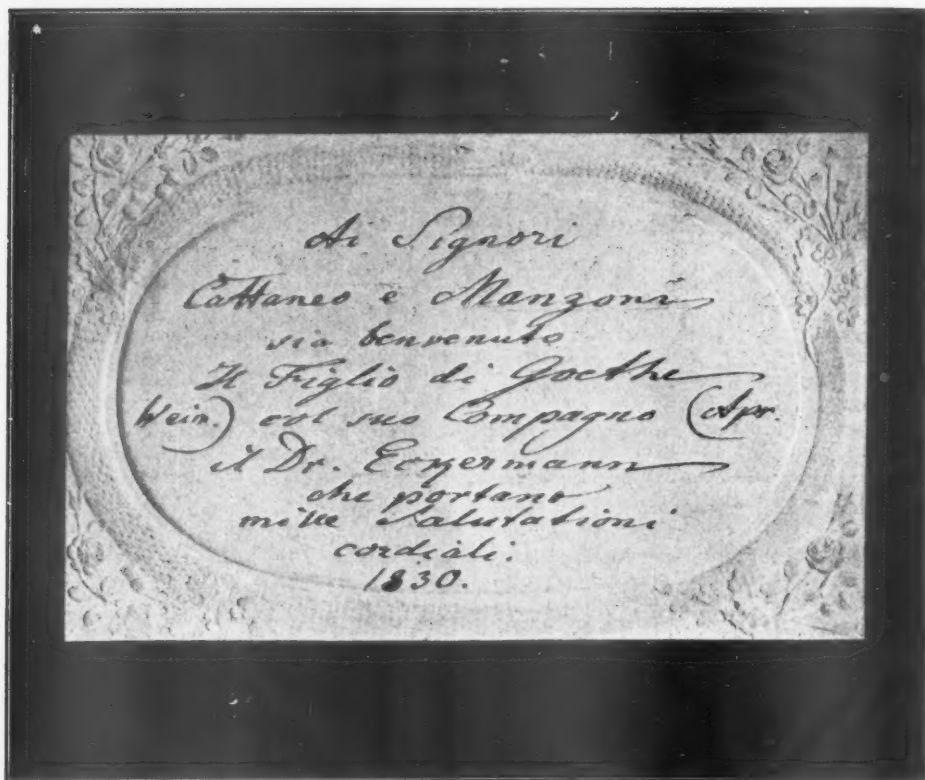 Ai Signori
Cattaneo e Manzoni
sia benvenuto
Il Figlio di Goethe
Weim.) col suo Compagno (Apr.
il Dr. Eckermann
che portano
mille Salutationi
cordiali.
1830.